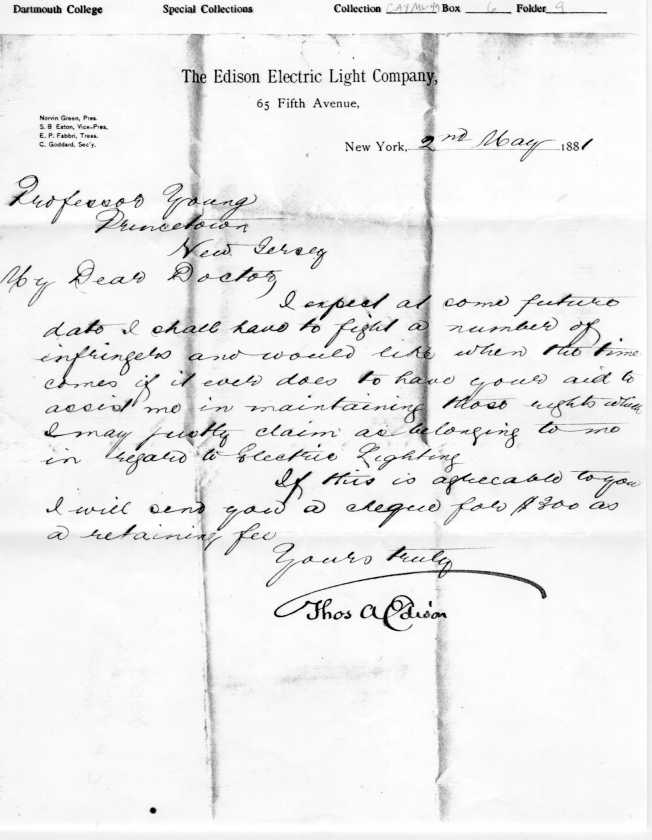 Dartmouth College Special Collections Collection Box 6 Folder 9
The Edison Electric Light Company,
65 Fifth Avenue,
Norvin Green, Pres.
S. B Eaton, Vice-Pres.
E. P. Fabbri, Treas.
C. Goddard, Sec'y.
New York, 2nd May 1881
Professor Young
Princetown
New Jersey
My Dear Doctor,
I expect at some future
date I shall have to fight a number of
infringers and would like when the time
comes if it ever does to have your aid to
assist me in maintaining those rights which
I may justly claim as belonging to me
in regard to Electric Lighting
If this is agreeable to you
I will send you a cheque for $200 as
a retaining fee
Yours truly
Thos A Edison